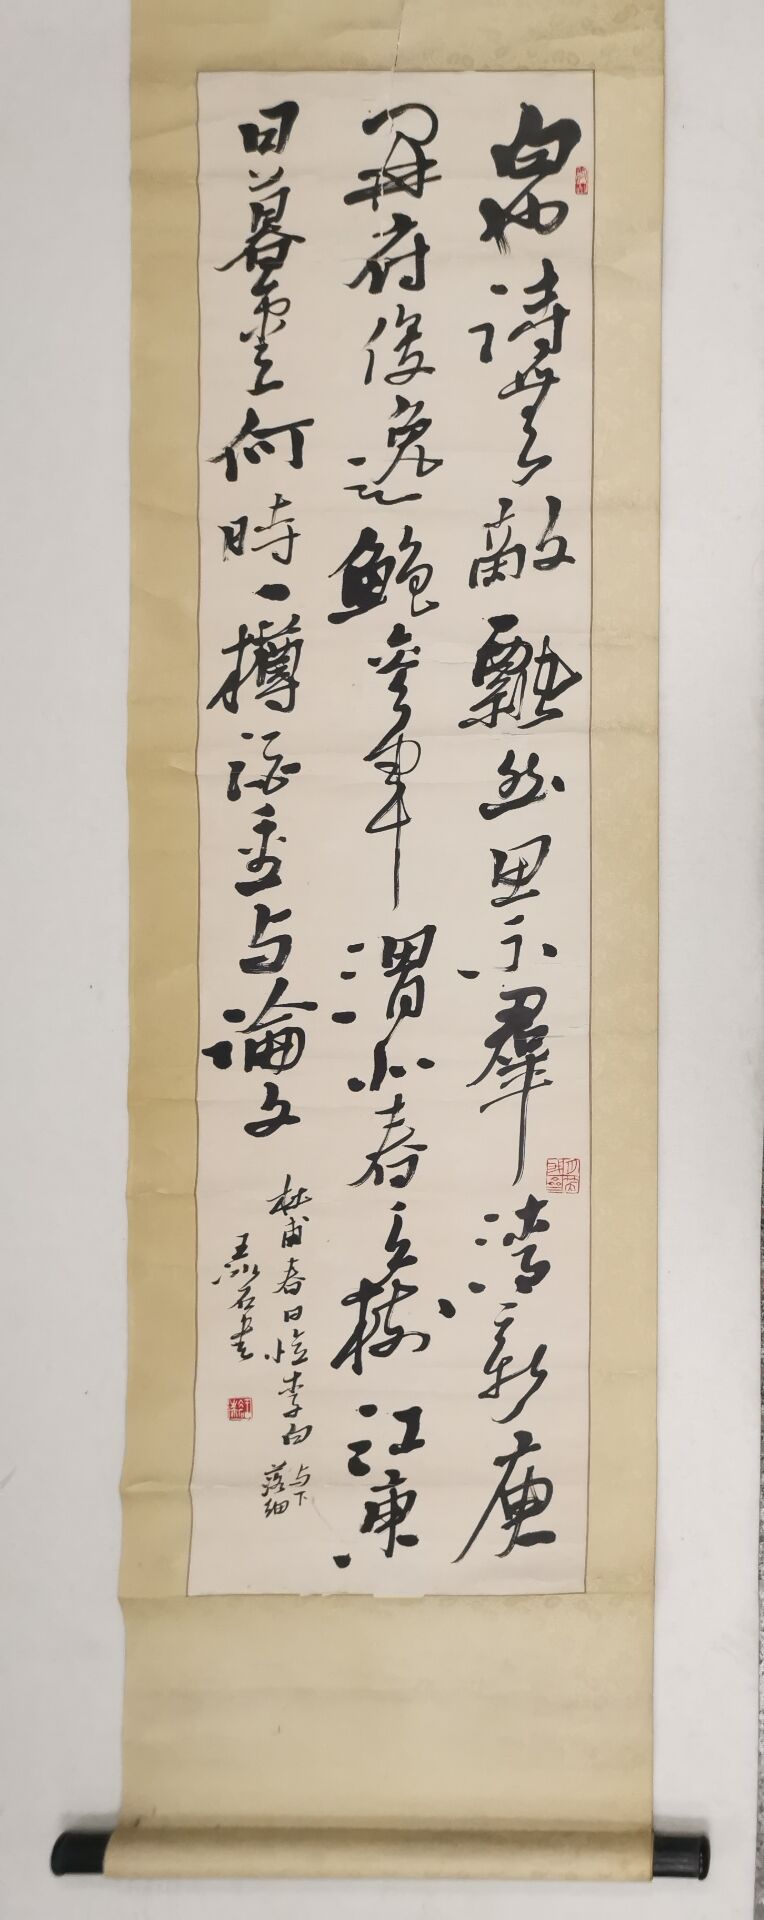 白也詩無敵飄然思不羣清新庾
開府俊逸鮑參軍渭北春天樹江東
日暮雲何時一樽酒重与論文
杜甫春日憶李白
与下
落細
王石書